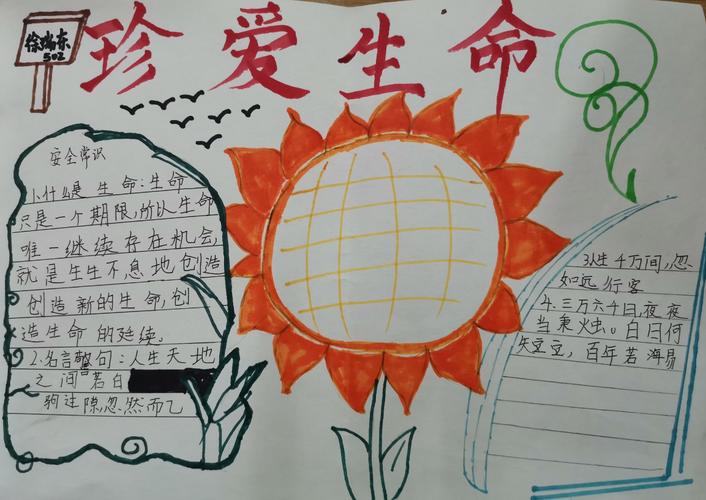 徐瑞东
502
珍爱生命
安全常识
1.什么是生命:生命
只是一个期限,所以生命
唯一继续存在机会,
就是生生不息地创造
创造新的生命,创
造生命的延续。
2.名言警句:人生天地
之间若白
驹过隙,忽然而已
3人生千万间,忽
如远行客
4.三万六千日,夜夜
当秉烛。白日何
短短,百年若海易